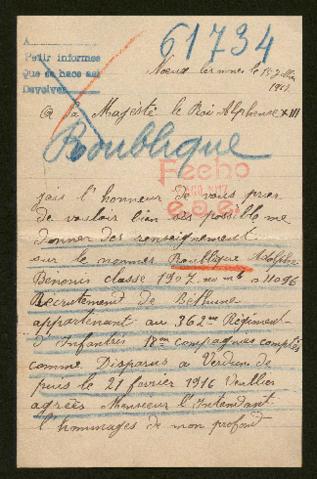 A
Pedir informes
que se hace así
Devolver
61734
Noeux les mines le 15 Juillet
1917
A la Majesté le Roi Alphonse XIII
Boublique
Fecho
AGO. 1917
jais l'honneur de vous prier
de vouloir bien si possible me
donner des renseignement
sur le nommer Boublique Adolphe
Benonis classe 1907 no mle 11096
Recrutement de Béthune
appartenant au 362me Régiment
d'Infanterie 18em compagnies comptés
comme Disparus a Verdun de
puis le 21 fevrier 1916 Veuillier
agrées Monsieur l'Intendant
l'hommages de mon profond